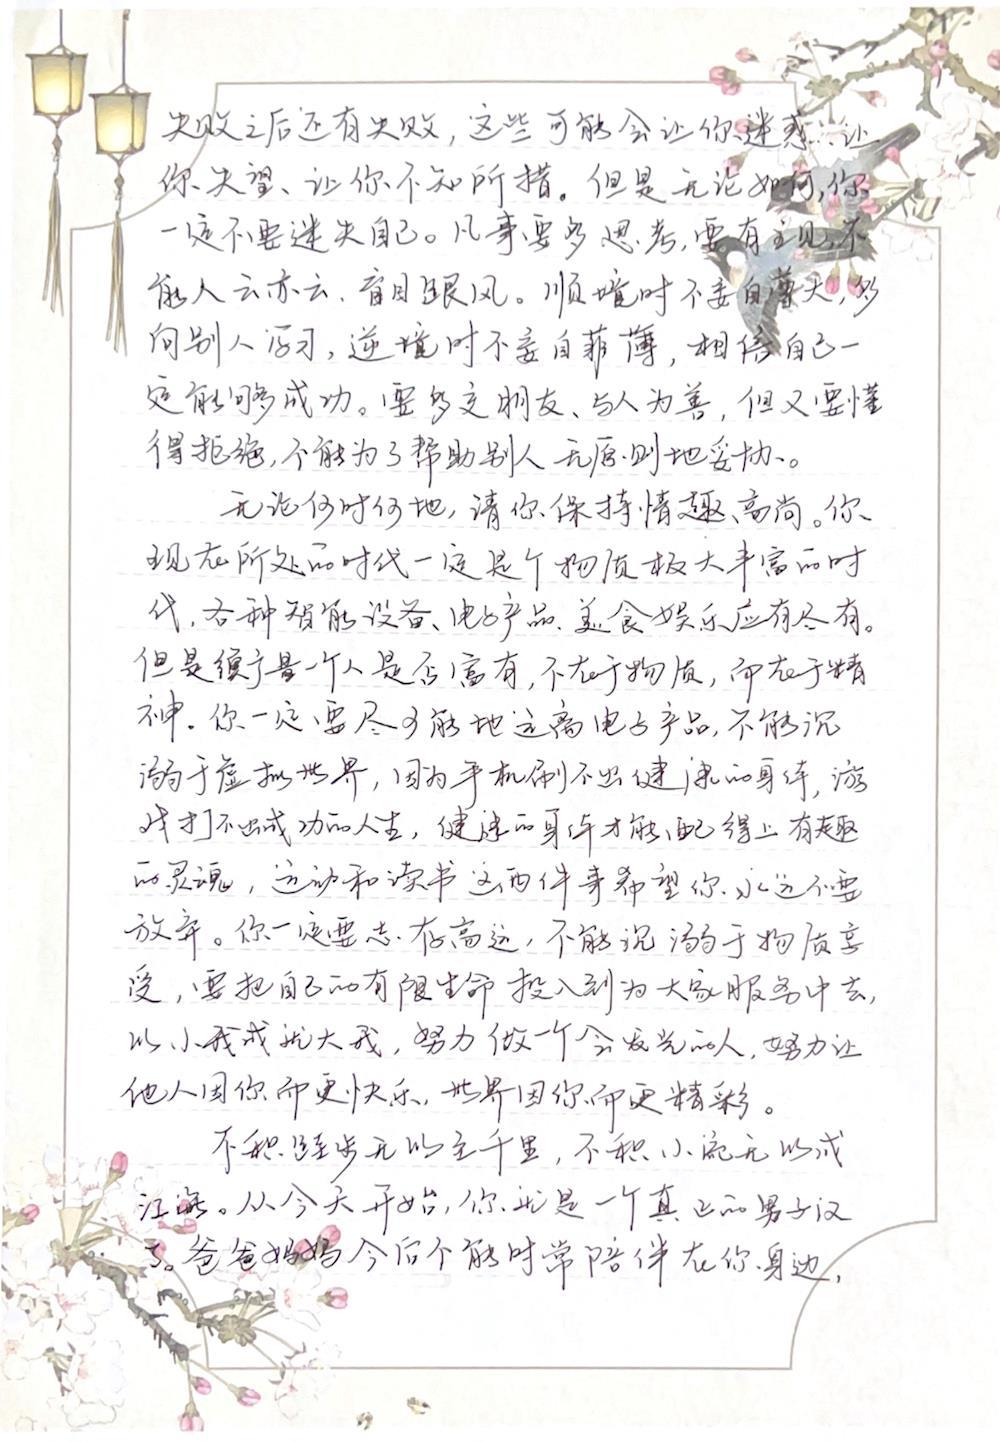 失败之后还有失败，这些可能会让你迷惑、让
你失望、让你不知所措。但是无论如何，你
一定不要迷失自己。凡事要多思考，要有主见，不
能人云亦云、盲目跟风。顺境时不妄自尊大，多
向别人学习，逆境时不妄自菲薄，相信自己一
定能够成功。要多交朋友、与人为善，但又要懂
得拒绝，不能为了帮助别人无原则地妥协。
无论何时何地，请你保持情趣高尚。你
现在所处的时代一定是个物质极大丰富的时
代，各种智能设备、电子产品、美食娱乐应有尽有。
但是衡量一个人是否富有，不在于物质，而在于精
神。你一定要尽可能地远离电子产品，不能沉
溺于虚拟世界，因为手机刷不出健康的身体，游
戏打不出成功的人生，健康的身体才能配得上有趣
的灵魂，运动和读书这两件事希望你永远不要
放弃。你一定要志存高远，不能沉溺于物质享
受，要把自己的有限生命投入到为大家服务中去，
以小我成就大我，努力做一个会发光的人，努力让
他人因你而更快乐，世界因你而更精彩。
不积跬步无以至千里，不积小流无以成
江海。从今天开始，你就是一个真正的男子汉
了。爸爸妈妈今后不能时常陪伴在你身边，